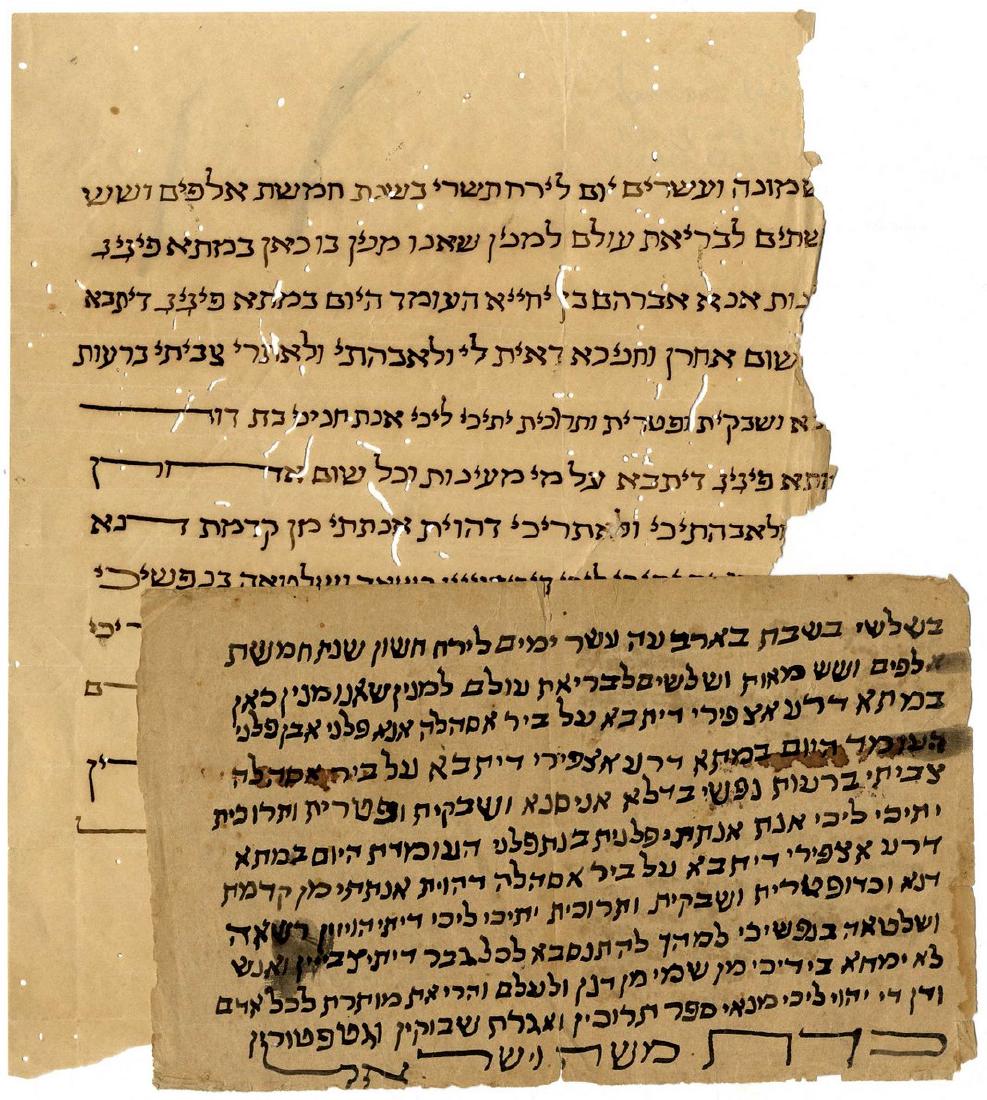 שמונה ועשרים יום לירח תשרי בשנת חמשת אלפים ושש
שתים לבריאת עולם למנין שאנו מנין בו כאן במתא פיגיג
אנא אברהם בן יחייא העומד היום במתא פיגיג דיתבא
שום אחרן וחניכא דאית לי ולאבהתי ולאתרי צביתי ברעות
ושבקית ופטרית ותרוכית יתיכי ליכי אנת חניני בת דוד
פיגיג דיתבא על מי מעינות וכל שום אחרן
ולאבהתיכי ולאתריכי דהוית אנתתי מן קדמת דנא
ושלטאה בנפשיכי
בשלשי בשבת בארבעה עשר ימים לירח חשון שנת חמשת
אלפים ושש מאות ושלשים לבריאת עולם למנין שאנו מנין כאן
במתא דרע אצפירי דיתבא על ביר אסהלה אנא פלני אבן פלני
העומד היום במתא דרע אצפירי דיתבא על ביר אסהלה
צביתי ברעות נפשי בדלא אניסנא ושבקית ופטרית ותרוכית
יתיכי ליכי אנת אנתתי פלנית בנת פלני העומדת היום במתא
דרע אצפירי דיתבא על ביר אסהלה דהוית אנתתי מן קדמת
דנא וכדו פטרית ושבקית ותרוכית יתיכי ליכי דיתיהוייון רשאה
ושלטאה בנפשיכי למהך להתנסבא לכל גבר דיתיצבייין ואנש
לא ימחא בידיכי מן שמי מן דנן ולעלם והרי את מותרת לכל אדם
ודן די יהוי ליכי מנאי ספר תרוכין ואגרת שבוקין וגט פטורין
כדת משה וישראל